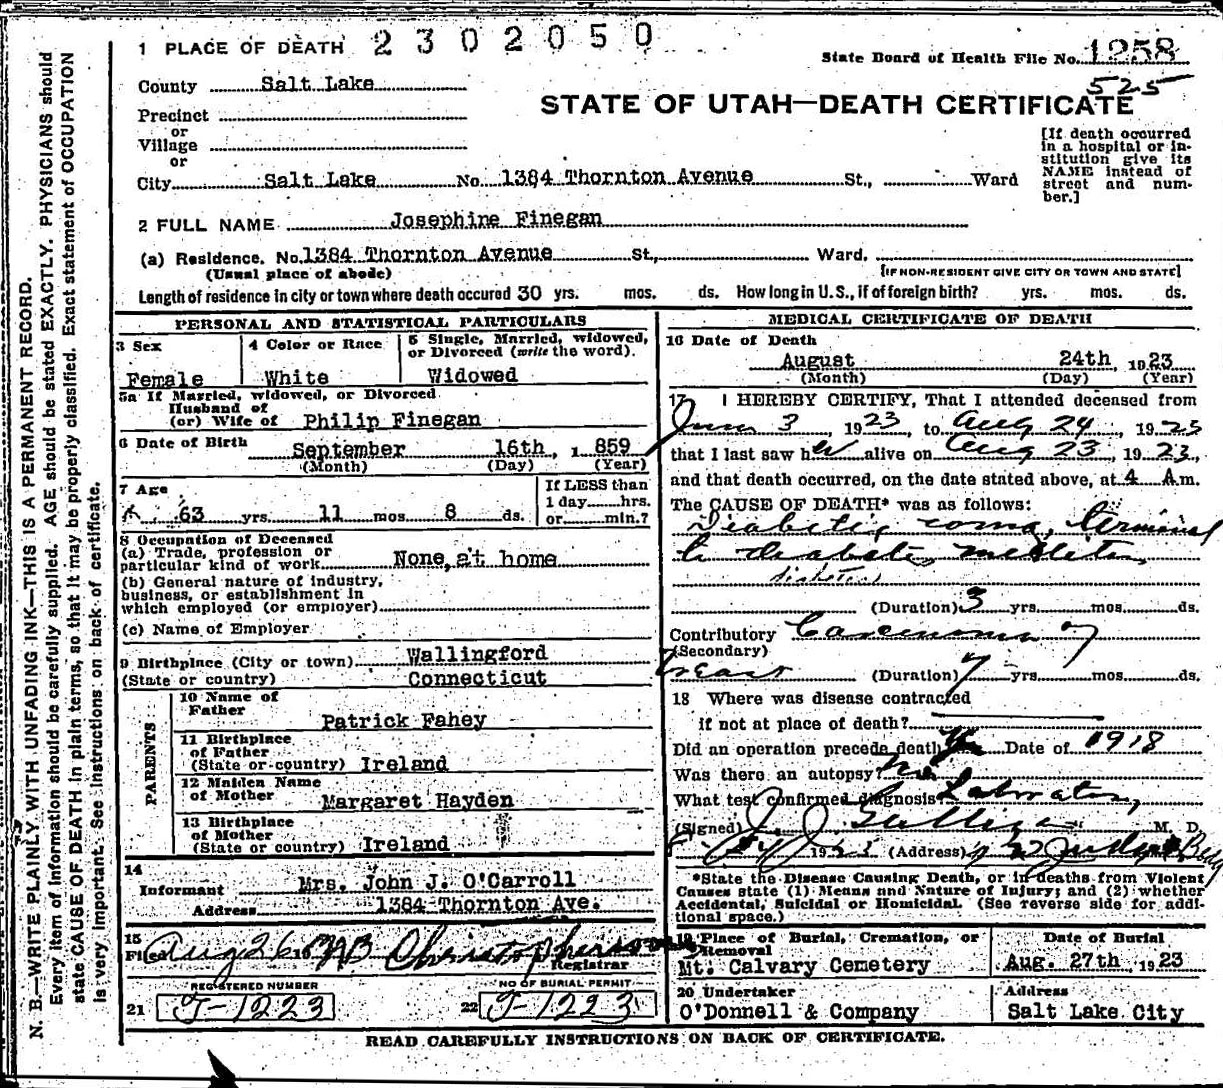 N. B.—WRITE PLAINLY WITH UNFADING INK—THIS IS A PERMANENT RECORD.
Every item of information should be carefully supplied. AGE should be stated EXACTLY. PHYSICIANS should
state CAUSE OF DEATH in plain terms, so that it may be properly classified. Exact statement of OCCUPATION
is very important. See instructions on back of certificate.
1 PLACE OF DEATH 2302050
State Board of Health File No. 1258
525
County Salt Lake
STATE OF UTAH—DEATH CERTIFICATE
Precinct
or
Village
or
City Salt Lake No. 1384 Thornton Avenue St., Ward
[If death occurred
in a hospital or in-
stitution give its
NAME instead of
street and num-
ber.]
2 FULL NAME Josephine Finegan
(a) Residence. No. 1384 Thornton Avenue St., Ward.
(Usual place of abode) [IF NON-RESIDENT GIVE CITY OR TOWN AND STATE]
Length of residence in city or town where death occured 30 yrs. mos. ds. How long in U. S., if of foreign birth? yrs. mos. ds.
PERSONAL AND STATISTICAL PARTICULARS
3 Sex
Female
4 Color or Race
White
5 Single, Married, widowed,
or Divorced (write the word).
Widowed
5a If Married, widowed, or Divorced
Husband of
(or) Wife of Philip Finegan
6 Date of Birth
September 16th, 1 859
(Month) (Day) (Year)
7 Age
63 yrs. 11 mos. 8 ds.
If LESS than
1 day hrs.
or min.?
8 Occupation of Deceased
(a) Trade, profession or
particular kind of work None, at home
(b) General nature of industry,
business, or establishment in
which employed (or employer)
(c) Name of Employer
9 Birthplace (City or town) Wallingford
(State or country) Connecticut
PARENTS
10 Name of
Father
Patrick Fahey
11 Birthplace
of Father
(State or country) Ireland
12 Maiden Name
of Mother Margaret Hayden
13 Birthplace
of Mother
(State or country) Ireland
14
Informant Mrs. John J. O'Carroll
Address 1384 Thornton Ave.
15
Filed Aug 26 Christopherson
Registrar
REGISTERED NUMBER
21 J-1223
NO OF BURIAL PERMIT
22 J-1223
MEDICAL CERTIFICATE OF DEATH
16 Date of Death
August 24th, 1923
(Month) (Day) (Year)
17 I HEREBY CERTIFY, That I attended deceased from
June 3 1923, to Aug 24, 1923
that I last saw her alive on Aug 23, 1923,
and that death occurred, on the date stated above, at 4 A.m.
The CAUSE OF DEATH* was as follows:
Diabetic coma, terminal
to diabetes mellitus
diabetes
(Duration) 3 yrs. mos. ds.
Contributory Carcinoma of
(Secondary)
breast (Duration) 7 yrs. mos. ds.
18 Where was disease contracted
if not at place of death?
Did an operation precede death yes Date of 1918
Was there an autopsy? no
What test confirmed diagnosis? Laboratory
(Signed) M. D.
1923 (Address) Judge Bldg
*State the Disease Causing Death, or in deaths from Violent
Causes state (1) Means and Nature of Injury; and (2) whether
Accidental, Suicidal or Homicidal. (See reverse side for addi-
tional space.)
19 Place of Burial, Cremation, or
Removal
Mt. Calvary Cemetery
Date of Burial
Aug. 27th, 1923
20 Undertaker
O'Donnell & Company
Address
Salt Lake City
READ CAREFULLY INSTRUCTIONS ON BACK OF CERTIFICATE.